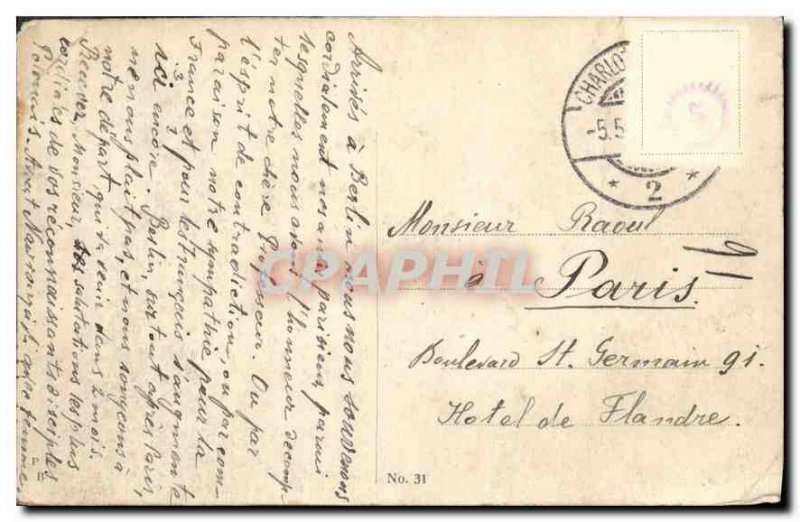 Arrivés à Berlin nous nous souvenons
cordialement nos amis parisiens, parmi
lesquelles nous avons l'honneur decomp
ter notre chère Professeur. Ou par
l'esprit de contradiction, ou par com
paraison notre sympathie pour la
France et pour les français s'augmente
ici encore. Berlin, surtout après Paris,
ne nous plait pas, et nous songeons à
notre départ, qui va venir dans 2 mois.
Recevez, Monsieur, salutations les plus
cordiales de vos réconnaissants disciples
avec femme.
CHARLO
-5.5
* 2 *
Monsieur Raoul
à Paris.
16
Boulevard St. Germain 91.
Hotel de Flandre.
No. 31
CPAPHIL